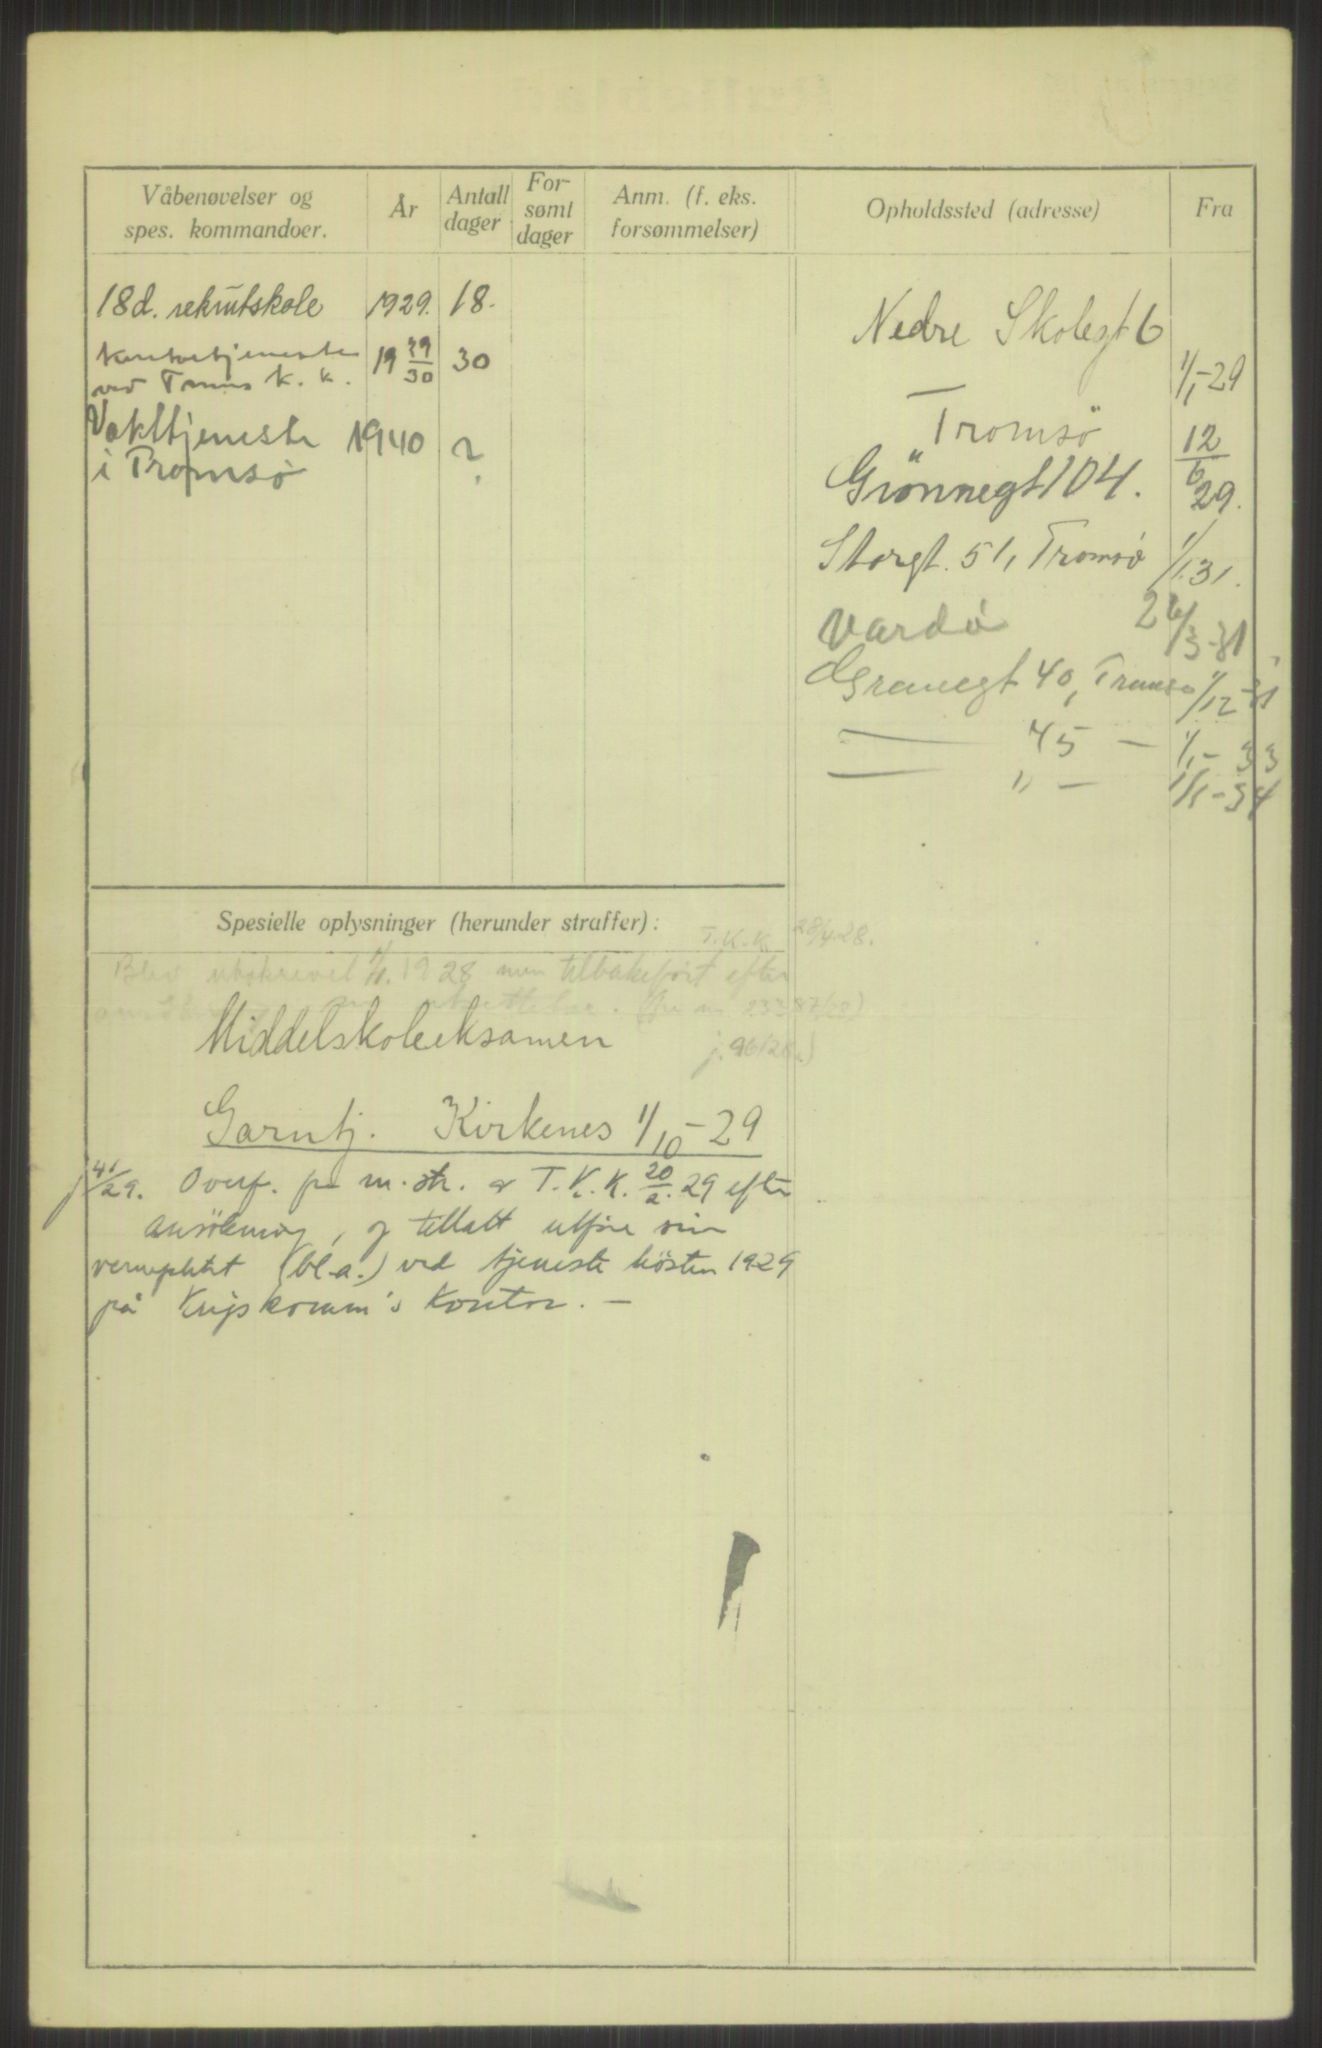 Våbenøvelser og spes. kommandoer. År Antall dager For- sømt dager Anm. (f. eks. forsømmelser) Opholdssted (adresse) Fra
18d. rekrutskole 1929. 18.
Kontortjeneste 19 29/30 30
ved Troms K. K.
Vakttjeneste 1940 ?
i Tromsø
Nedre Skolegt 6
1/1-29
Tromsö 12/6 29.
Grönnegt 104.
Storgt. 51, Tromsø 1/1.31.
Vardø 26/3-31
Grønnegt 40, Tromsø 1/12-31
— 45 — 1/1-33
— " — 1/1-34
Spesielle oplysninger (herunder straffer):
T.K.K. 28/4 28.
Blev utskrevet 1/1.1928 men tilbakeført efter
Middelskoleeksamen
Garntj. Kirkenes 1/10-29
j 41/29. Overf. fra m.str. av T.K.K. 20/2.29 efter
ansökning, og tillatt utføre sin
verneplikt (bl.a.) ved tjeneste hösten 1929
på Krigskomm's Kontor. —